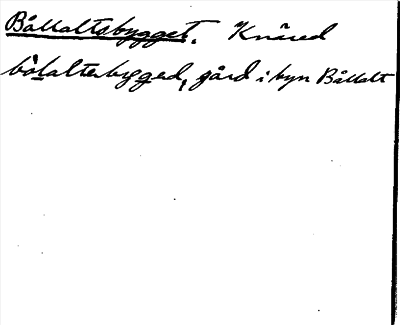 Bållaltsbygget. Knäred
bålalterbygged, gård i byn Bållalt